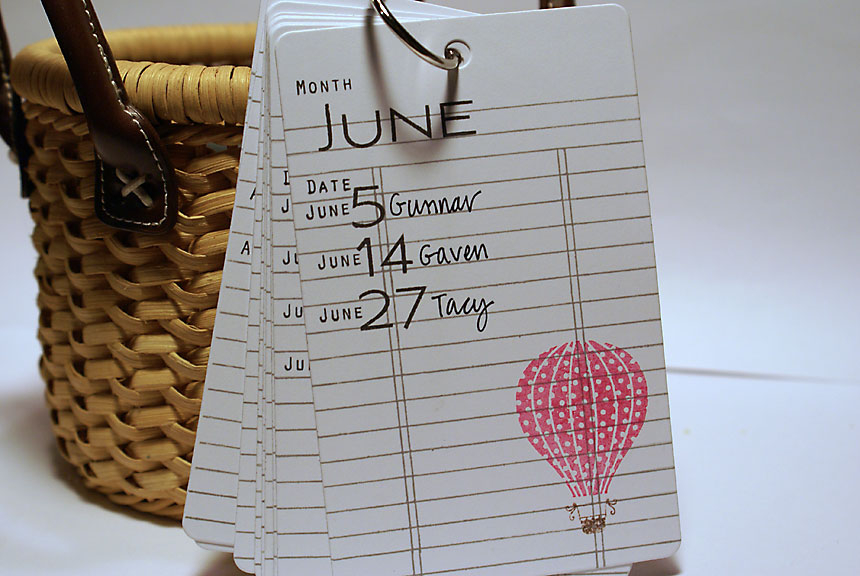 MONTH
JUNE
DATE
JUNE 5 Gunnar
JUNE 14 Gaven
JUNE 27 Tacy